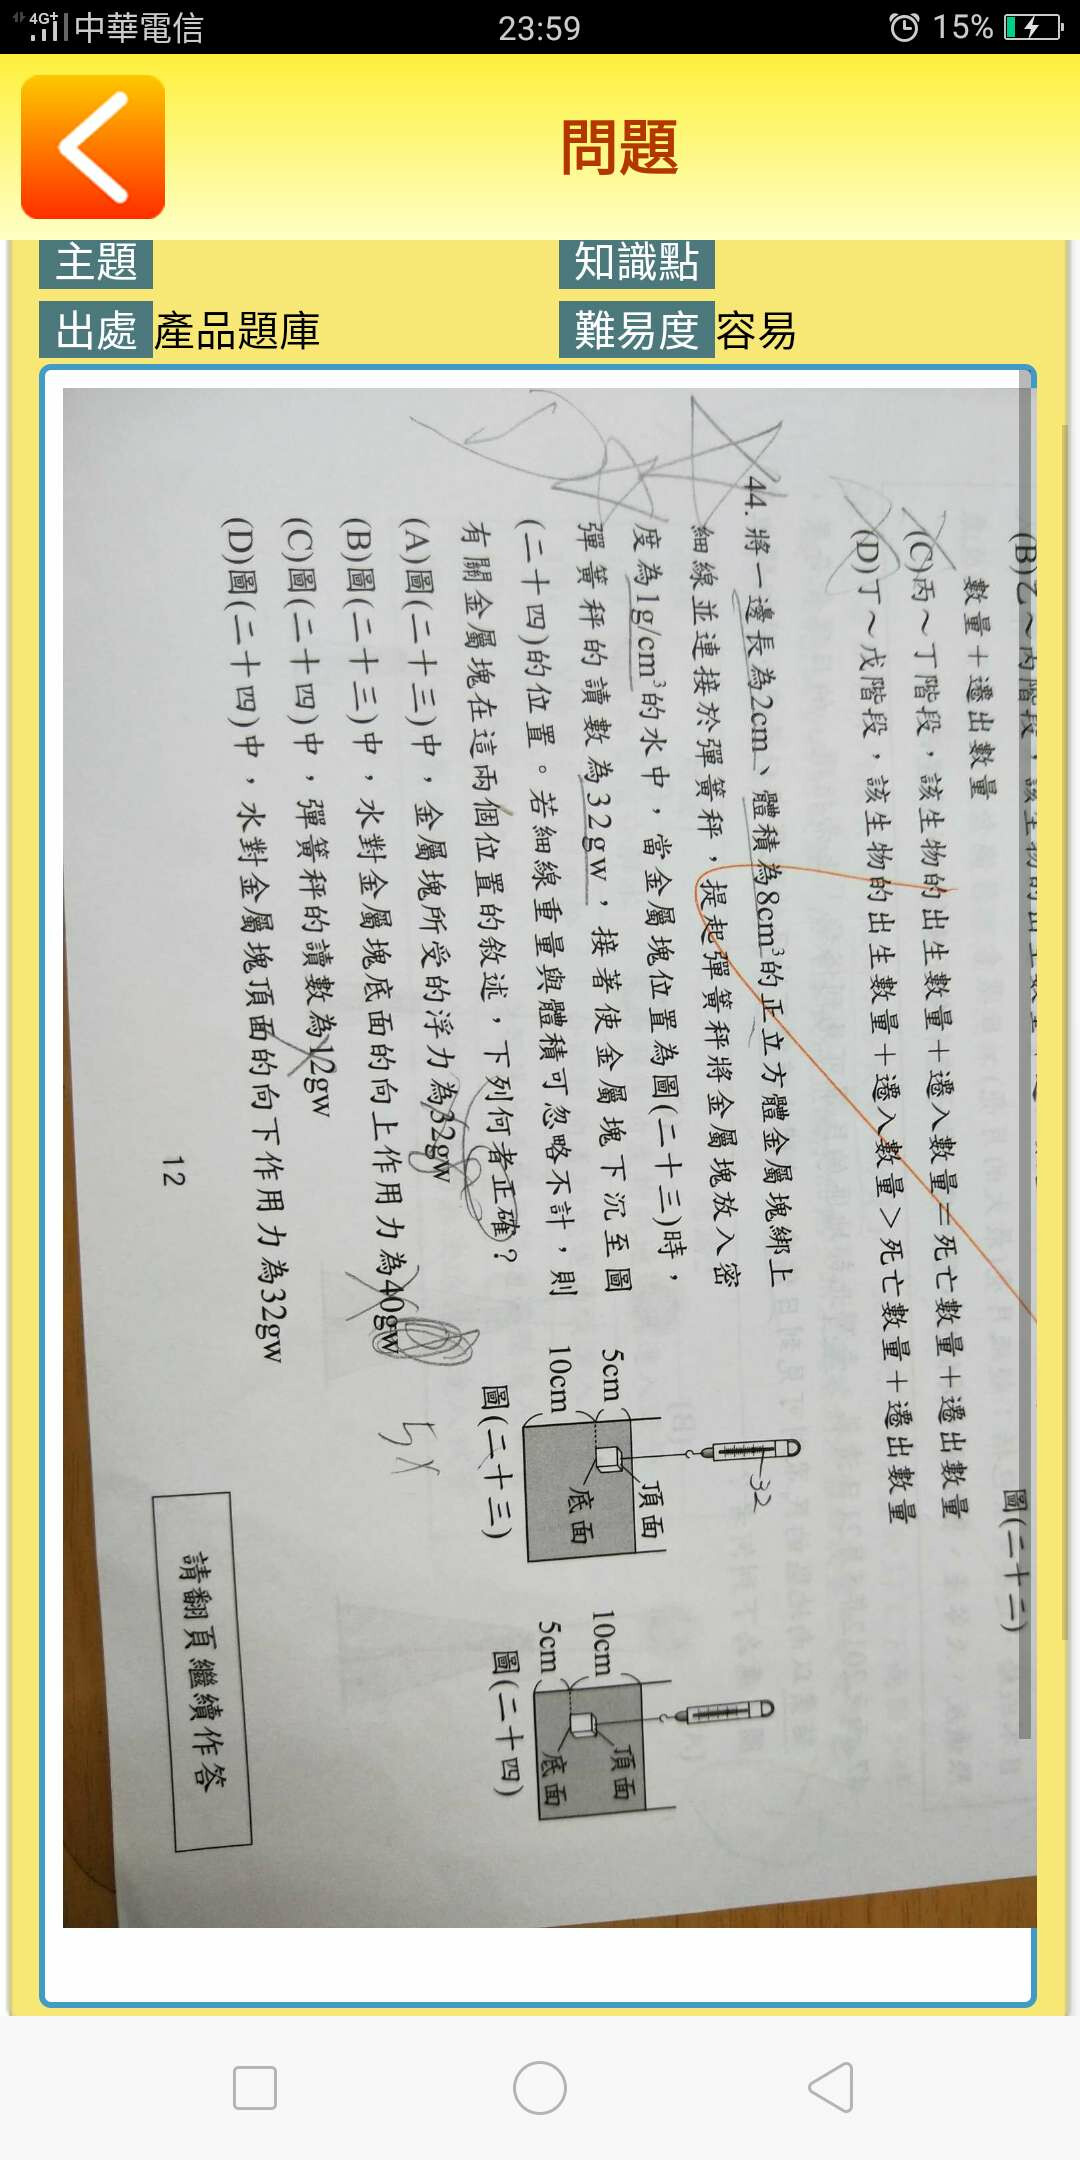 4G+ 中華電信 23:59 15%
問題
主題 知識點
出處 產品題庫 難易度 容易
數量+遷出數量
(C)丙～丁階段，該生物的出生數量+遷入數量=死亡數量+遷出數量
(D)丁～戊階段，該生物的出生數量+遷入數量>死亡數量+遷出數量
圖(二十二)
44. 將一邊長為2cm、體積為8cm³的正立方體金屬塊綁上
細線並連接於彈簧秤，提起彈簧秤將金屬塊放入密
度為1g/cm³的水中，當金屬塊位置為圖(二十三)時，
彈簧秤的讀數為32gw，接著使金屬塊下沉至圖
(二十四)的位置。若細線重量與體積可忽略不計，則
有關金屬塊在這兩個位置的敘述，下列何者正確？
(A)圖(二十三)中，金屬塊所受的浮力為32gw
(B)圖(二十三)中，水對金屬塊底面的向上作用力為40gw
(C)圖(二十四)中，彈簧秤的讀數為12gw
(D)圖(二十四)中，水對金屬塊頂面的向下作用力為32gw
32
頂面
5cm
底面
10cm
圖(二十三)
頂面
10cm
底面
5cm
圖(二十四)
12
請翻頁繼續作答